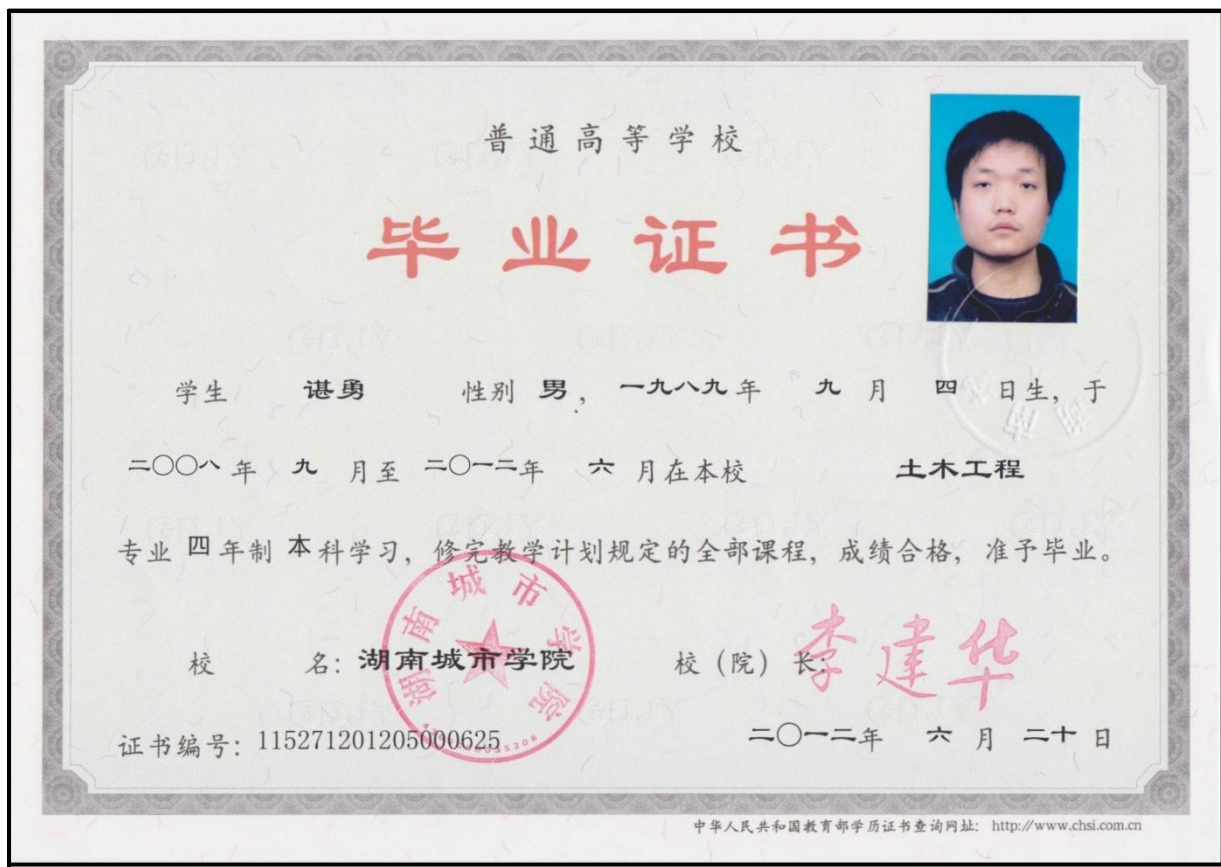 普通高等学校
毕业证书
学生 谌勇 性别 男，一九八九年 九 月 四 日生，于
二〇〇八 年 九 月至 二〇一二年 六 月在本校 土木工程
专业 四 年制 本 科学习，修完教学计划规定的全部课程，成绩合格，准予毕业。
校 名：湖南城市学院 校（院）长：李建华
湖南城市学院
证书编号：115271201205000625 二〇一二年 六 月 二十 日
中华人民共和国教育部学历证书查询网址：http://www.chsi.com.cn